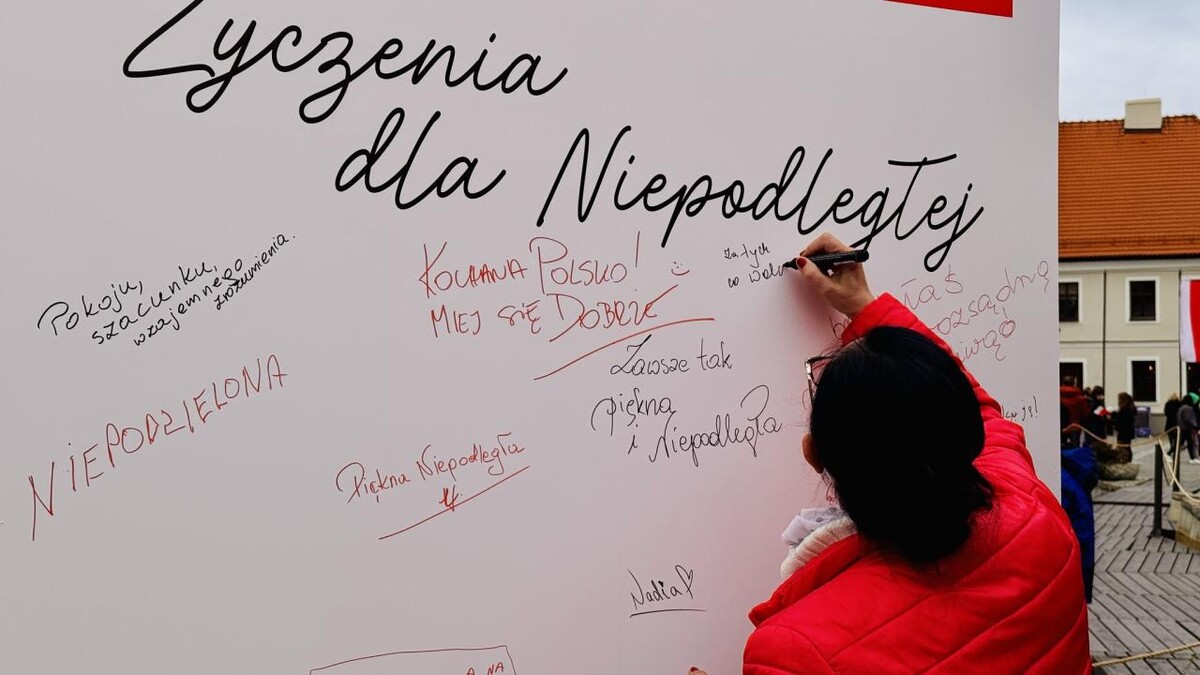 Życzenia
dla Niepodległej
Pokoju,
szacunku,
wzajemnego
zrozumienia.
KOCHANA POLSKO!
MIEJ SIĘ DOBRZE
za tych
co
NIEPODZIELONA
Zawsze tak
piękna
i Niepodległa
Piękna Niepodległa
Nadia
NA